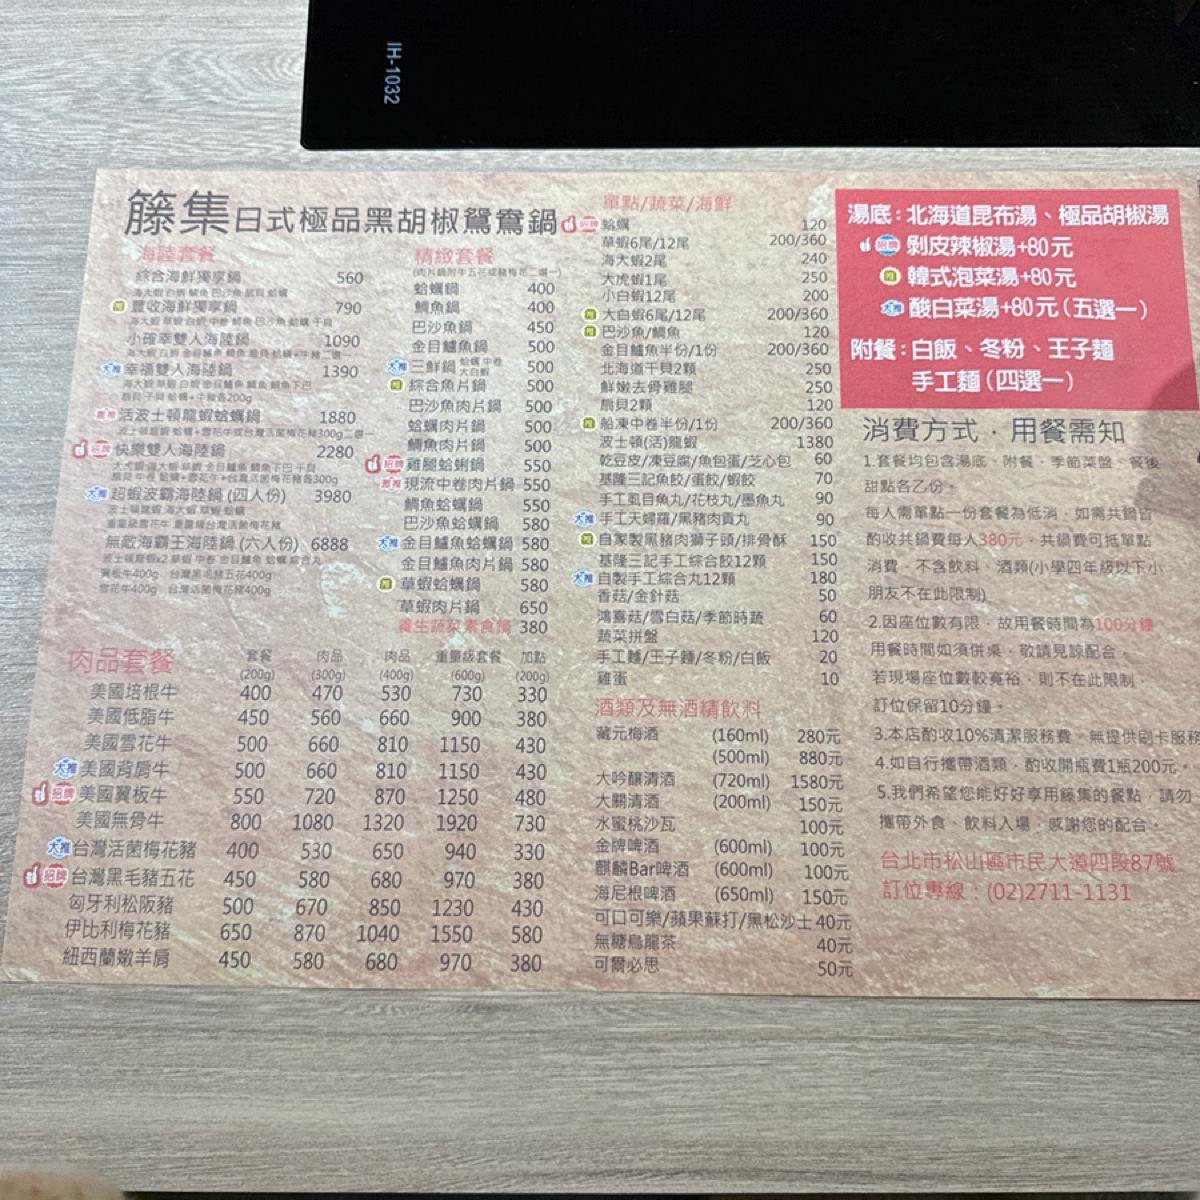 IH-1032
籐集日式極品黑胡椒鴛鴦鍋
海陸套餐
綜合海鮮獨享鍋 560
推 豐收海鮮獨享鍋 790
小確幸雙人海陸鍋 1090
大推 幸福雙人海陸鍋 1390
活波士頓龍蝦蛤蠣鍋 1880
招牌 快樂雙人海陸鍋 2280
大推 超蝦波霸海陸鍋 (四人份) 3980
無敵海霸王海陸鍋 (六人份) 6888
精緻套餐
(肉片鍋附牛五花或豬梅花二選一)
蛤蠣鍋 400
鯛魚鍋 400
巴沙魚鍋 450
金目鱸魚鍋 500
大推 三鮮鍋 蛤蠣 中卷 大白蝦 500
推 綜合魚片鍋 500
巴沙魚肉片鍋 500
蛤蠣肉片鍋 500
鯛魚肉片鍋 500
招牌 雞腿蛤蜊鍋 550
現流中卷肉片鍋 550
鯛魚蛤蠣鍋 550
巴沙魚蛤蠣鍋 580
大推 金目鱸魚蛤蠣鍋 580
金目鱸魚肉片鍋 580
推 草蝦蛤蠣鍋 580
草蝦肉片鍋 650
養生蔬菜素食鍋 380
肉品套餐
套餐 肉品 肉品 重量級套餐 加點
(200g) (300g) (400g) (600g) (200g)
美國培根牛 400 470 530 730 330
美國低脂牛 450 560 660 900 380
美國雪花牛 500 660 810 1150 430
大推 美國背肩牛 500 660 810 1150 430
招牌 美國翼板牛 550 720 870 1250 480
美國無骨牛 800 1080 1320 1920 730
大推 台灣活菌梅花豬 400 530 650 940 330
招牌 台灣黑毛豬五花 450 580 680 970 380
匈牙利松阪豬 500 670 850 1230 430
伊比利梅花豬 650 870 1040 1550 580
紐西蘭嫩羊肩 450 580 680 970 380
單點/蔬菜/海鮮
招牌 蛤蠣 120
草蝦6尾/12尾 200/360
海大蝦2尾 240
大虎蝦1尾 250
小白蝦12尾 200
推 大白蝦6尾/12尾 200/360
推 巴沙魚/鯛魚 120
金目鱸魚半份/1份 200/360
北海道干貝2顆 250
鮮嫩去骨雞腿 250
扇貝2顆 120
推 船凍中卷半份/1份 200/360
波士頓(活)龍蝦 1380
乾豆皮/凍豆腐/魚包蛋/芝心包 60
基隆三記魚餃/蛋餃/蝦餃 70
手工虱目魚丸/花枝丸/墨魚丸 90
大推 手工天婦羅/黑豬肉貢丸 90
推 自家製黑豬肉獅子頭/排骨酥 150
基隆三記手工綜合餃12顆 150
大推 自製手工綜合丸12顆 180
香菇/金針菇 50
鴻喜菇/雪白菇/季節時蔬 60
蔬菜拼盤 120
手工麵/王子麵/冬粉/白飯 20
雞蛋 10
酒類及無酒精飲料
藏元梅酒 (160ml) 280元
(500ml) 880元
大吟釀清酒 (720ml) 1580元
大關清酒 (200ml) 150元
水蜜桃沙瓦 100元
金牌啤酒 (600ml) 100元
麒麟Bar啤酒 (600ml) 100元
海尼根啤酒 (650ml) 150元
可口可樂/蘋果蘇打/黑松沙士 40元
無糖烏龍茶 40元
可爾必思 50元
湯底：北海道昆布湯、極品胡椒湯
招牌 剝皮辣椒湯+80元
推 韓式泡菜湯+80元
大推 酸白菜湯+80元（五選一）
附餐：白飯、冬粉、王子麵
手工麵（四選一）
消費方式．用餐需知
1.套餐均包含湯底、附餐、季節菜盤、餐後
甜點各乙份。
每人需單點一份套餐為低消，如需共鍋皆
酌收共鍋費每人380元，共鍋費可抵單點
消費，不含飲料、酒類(小學四年級以下小
朋友不在此限制)
2.因座位數有限，故用餐時間為100分鐘
用餐時間如須併桌，敬請見諒配合。
若現場座位數較寬裕，則不在此限制，
訂位保留10分鐘。
3.本店酌收10%清潔服務費，無提供刷卡服務
4.如自行攜帶酒類，酌收開瓶費1瓶200元。
5.我們希望您能好好享用籐集的餐點，請勿
攜帶外食、飲料入場，感謝您的配合。
台北市松山區市民大道四段87號
訂位專線：(02)2711-1131